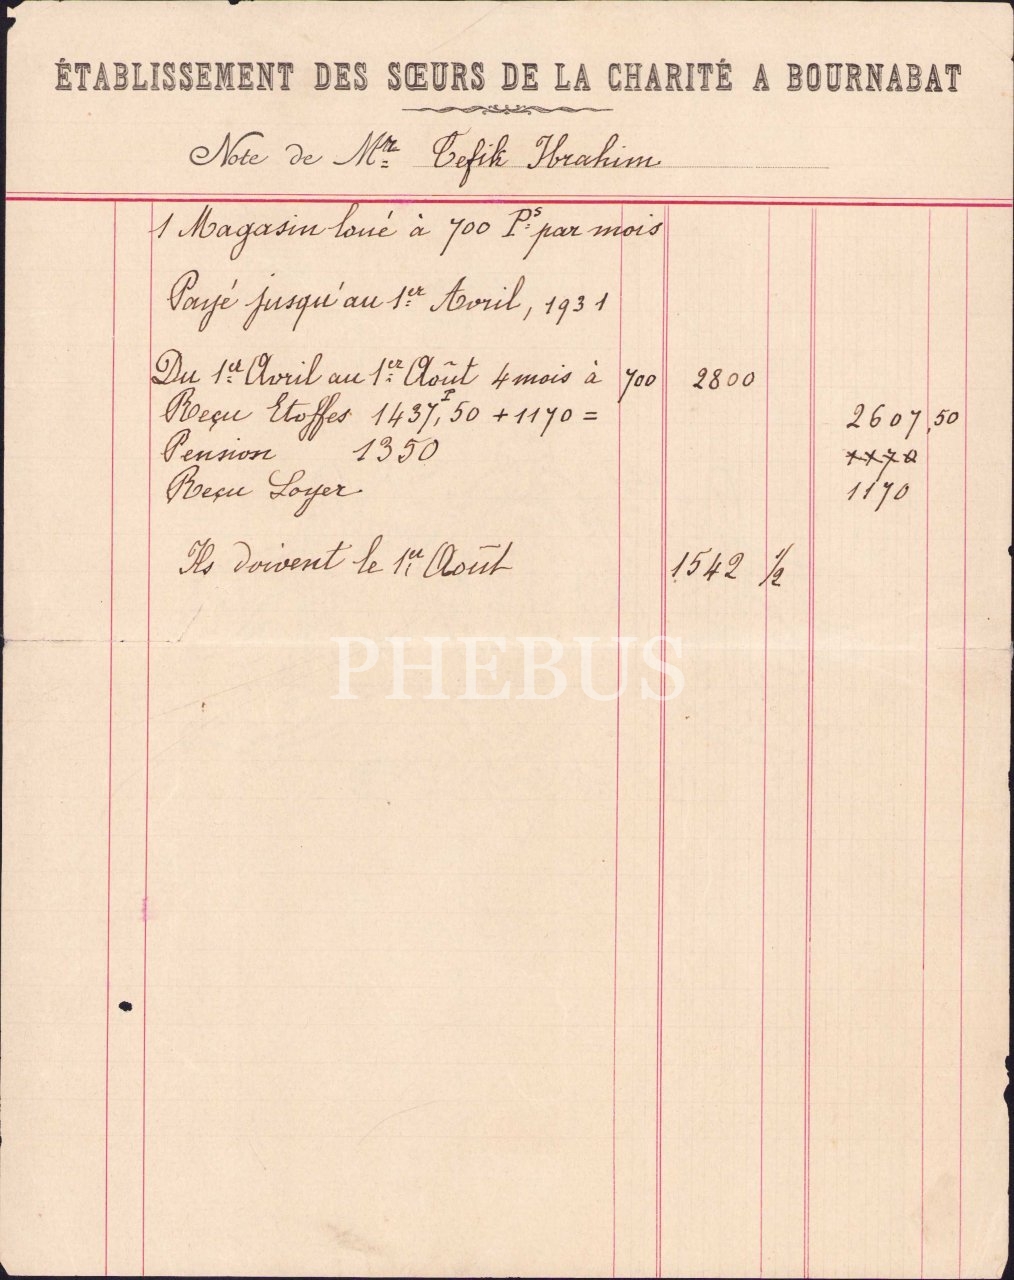 ÉTABLISSEMENT DES SŒURS DE LA CHARITÉ A BOURNABAT
Note de Mr Tefik Ibrahim
1 Magasin loué à 700 Ps par mois
Payé jusqu'au 1er Avril, 1931
Du 1er Avril au 1er Août 4 mois à 700 2800
Reçu Etoffes 1437,50 + 1170 = 2607,50
Pension 1350 1170
Reçu Loyer 1170
Ils doivent le 1er Août 1542 1/2
PHEBUS